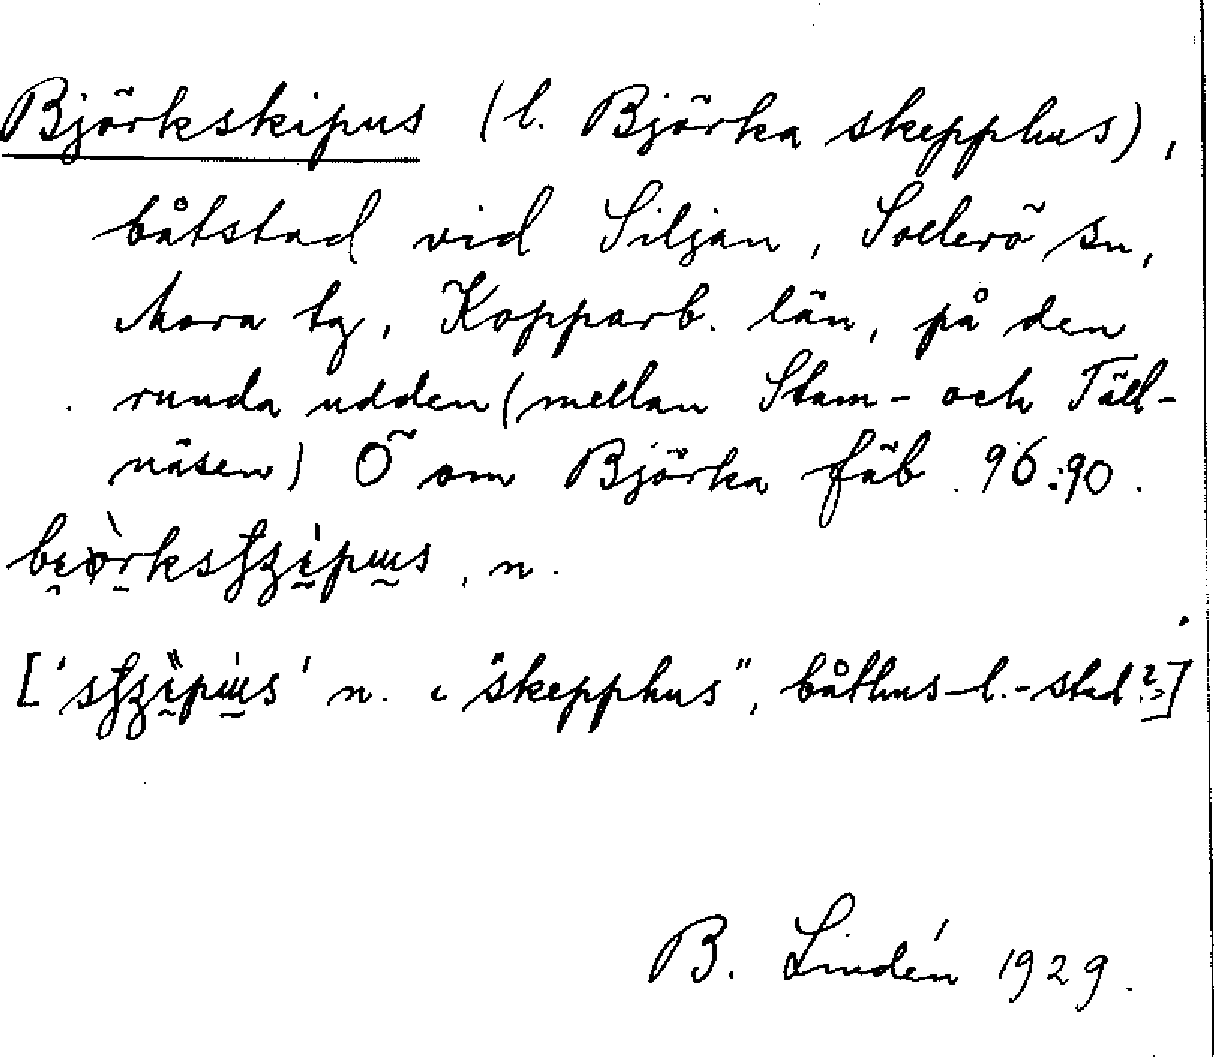 Björkskipus (l. Björka skepphus),
båtstad vid Siljan, Sollerö sn,
Mora tg, Kopparb. län, på den
runda udden (mellan Stam- och Täll-
näsen) Ö om Björka fäb. 96:90.
n.
n. "skepphus", båthus- l. -stad?]
B. Lindén 1929.